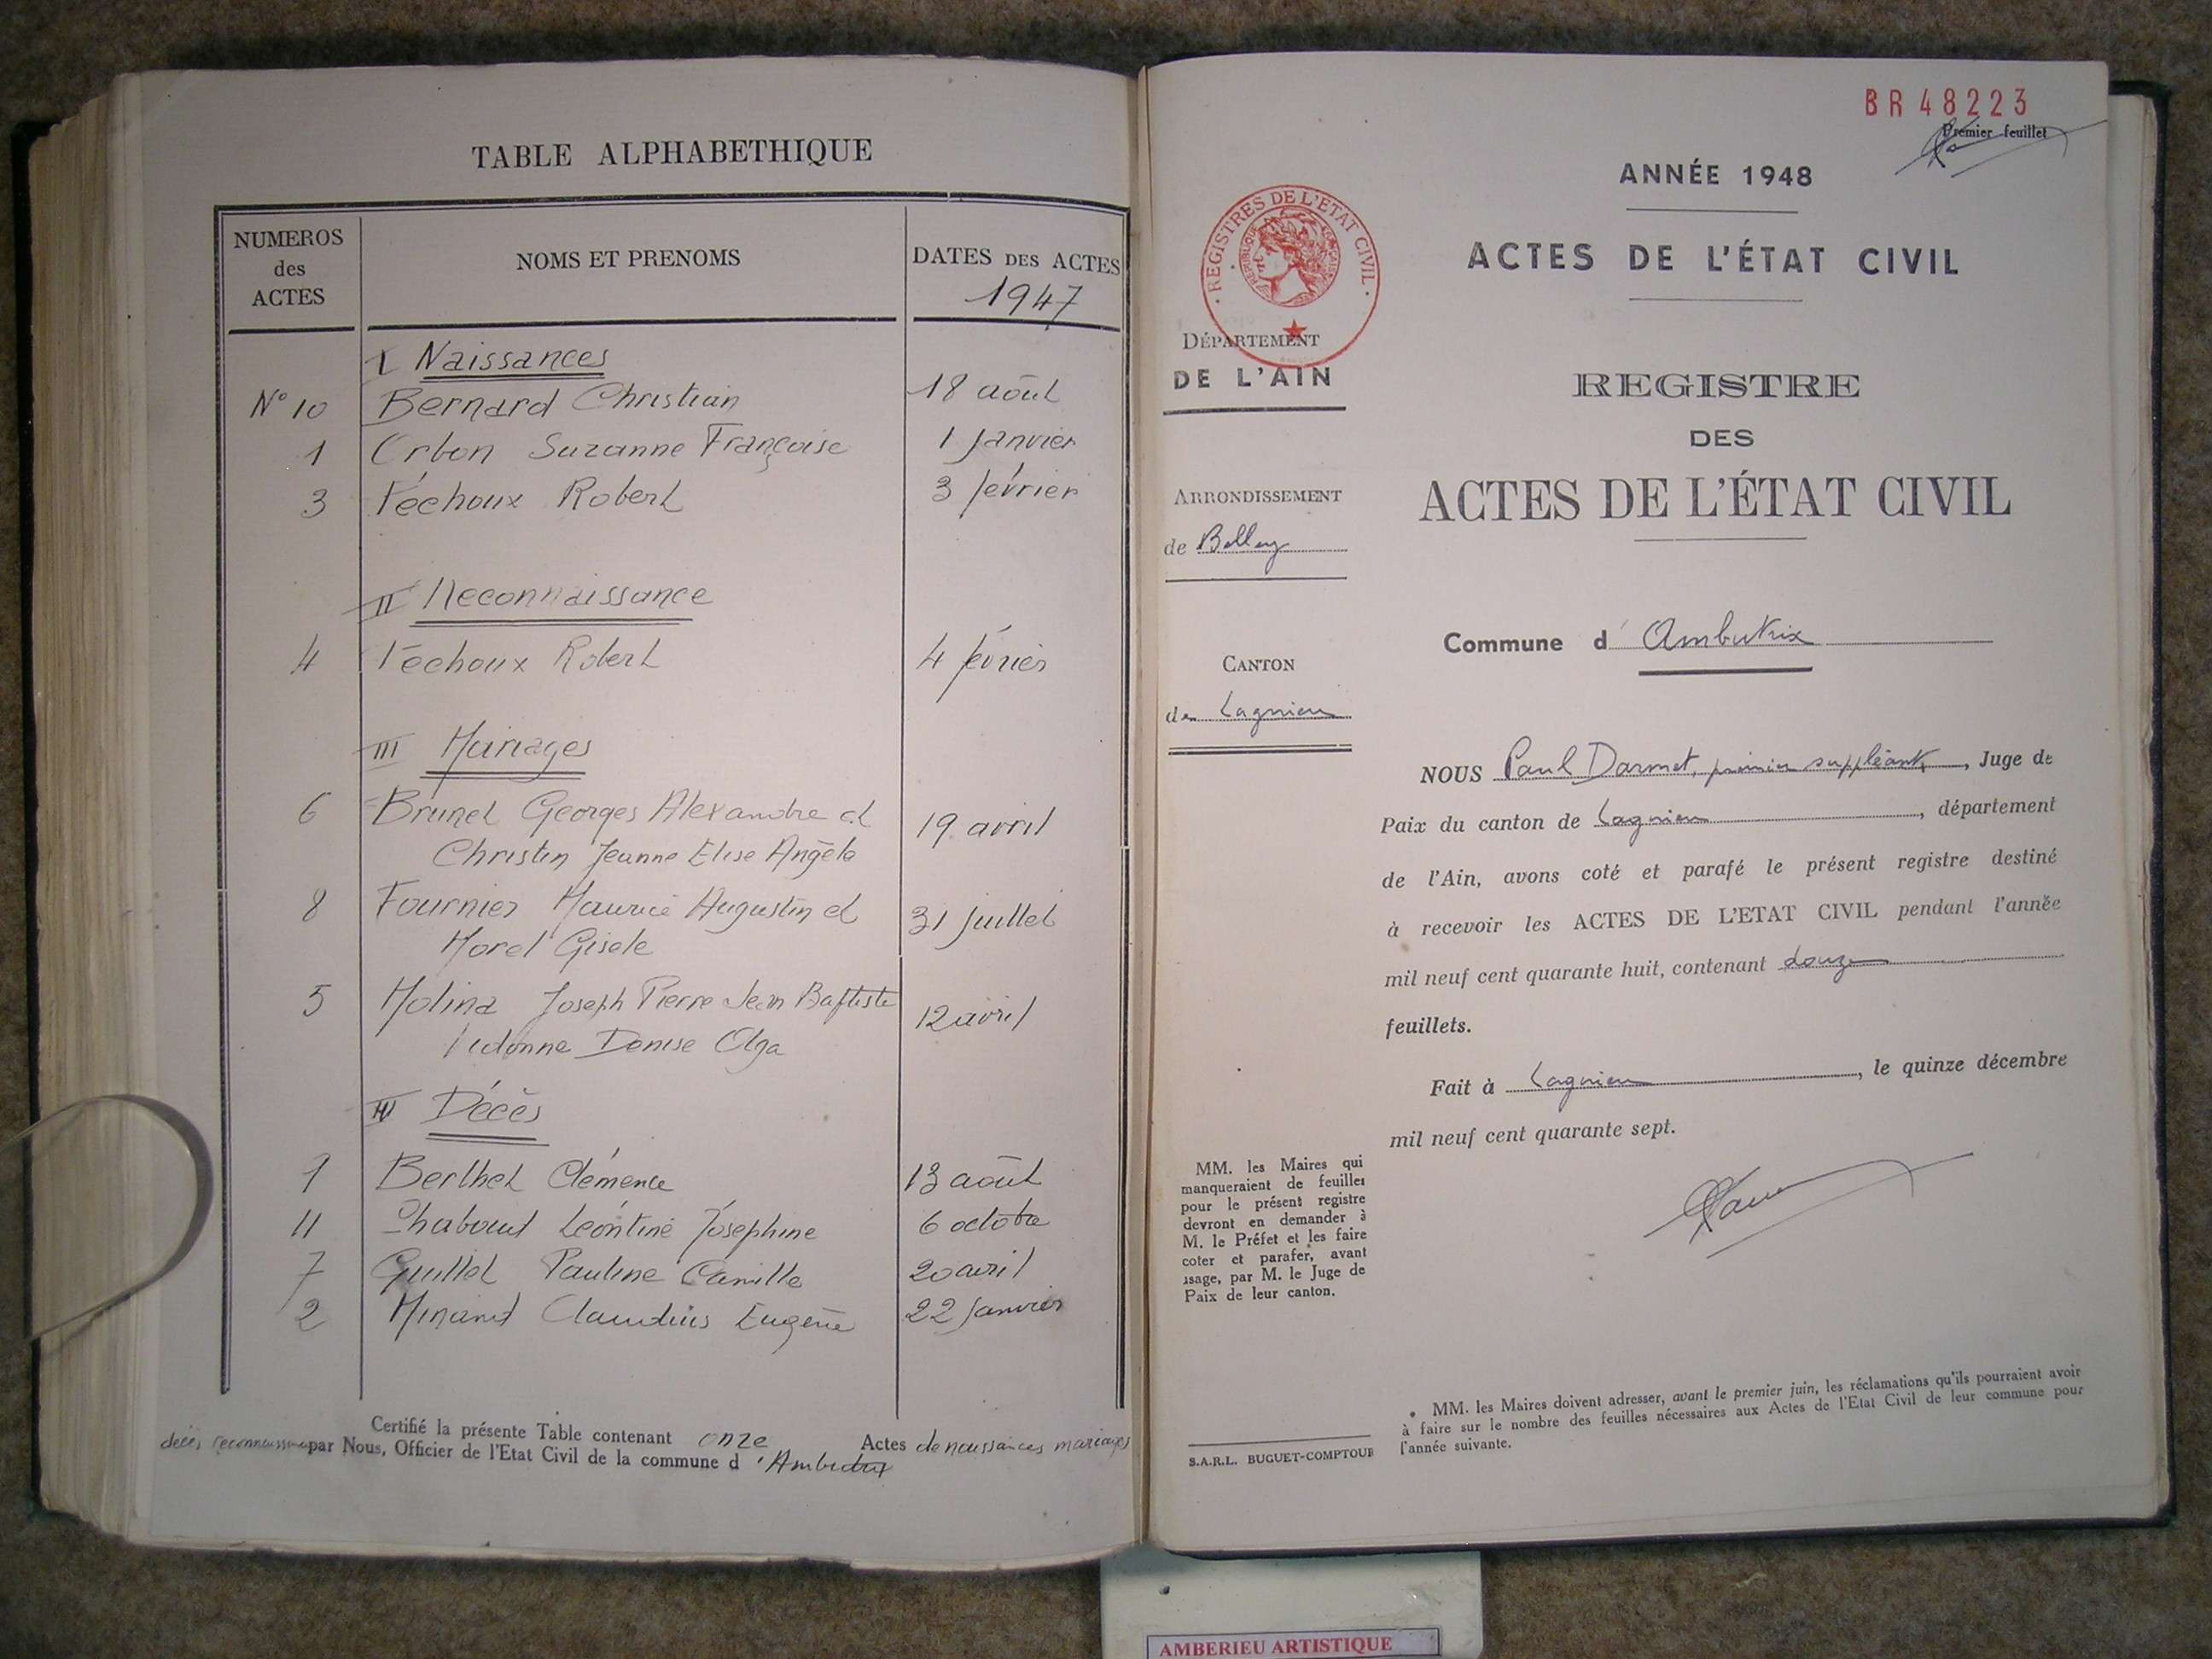 TABLE ALPHABETHIQUE
NUMEROS des ACTES
NOMS ET PRENOMS
DATES DES ACTES
1947
I Naissances
N° 10 Bernard Christian 18 août
1 Orbon Suzanne Françoise 1 Janvier
3 Péchoux Robert 3 février
II Reconnaissance
4 Péchoux Robert 4 février
III Mariages
6 Brunet Georges Alexandre et 19 avril
Christin Jeanne Elise Angèle
8 Fournier Maurice Augustin et 31 juillet
Morel Gisele
5 Molina Joseph Pierre Jean Baptiste 12 avril
Vidonne Denise Olga
IV Décès
9 Berthet Clémence 13 août
11 Chabout Léontine Joséphine 6 octobre
7 Guillet Pauline Camille 20 avril
2 Minand Claudius Eugène 22 Janvier
Certifié la présente Table contenant onze Actes de naissances mariages
décès reconnaissance par Nous, Officier de l'Etat Civil de la commune d'Ambutrix
BR 48223
Premier feuillet
ANNÉE 1948
ACTES DE L'ÉTAT CIVIL
REGISTRES DE L'ETAT CIVIL
REPUBLIQUE FRANÇAISE
DÉPARTEMENT
DE L'AIN
REGISTRE
DES
ACTES DE L'ÉTAT CIVIL
ARRONDISSEMENT
de Belley
Commune d'Ambutrix
CANTON
de Lagnieu
NOUS Paul Darmet, premier suppléant, Juge de
Paix du canton de Lagnieu, département
de l'Ain, avons coté et parafé le présent registre destiné
à recevoir les ACTES DE L'ETAT CIVIL pendant l'année
mil neuf cent quarante huit, contenant douze
feuillets.
Fait à Lagnieu, le quinze décembre
mil neuf cent quarante sept.
MM. les Maires qui
manqueraient de feuilles
pour le présent registre
devront en demander à
M. le Préfet et les faire
coter et parafer, avant
usage, par M. le Juge de
Paix de leur canton.
MM. les Maires doivent adresser, avant le premier juin, les réclamations qu'ils pourraient avoir
à faire sur le nombre des feuilles nécessaires aux Actes de l'Etat Civil de leur commune pour
l'année suivante.
S.A.R.L. BUGUET-COMPTOUR
AMBERIEU ARTISTIQUE